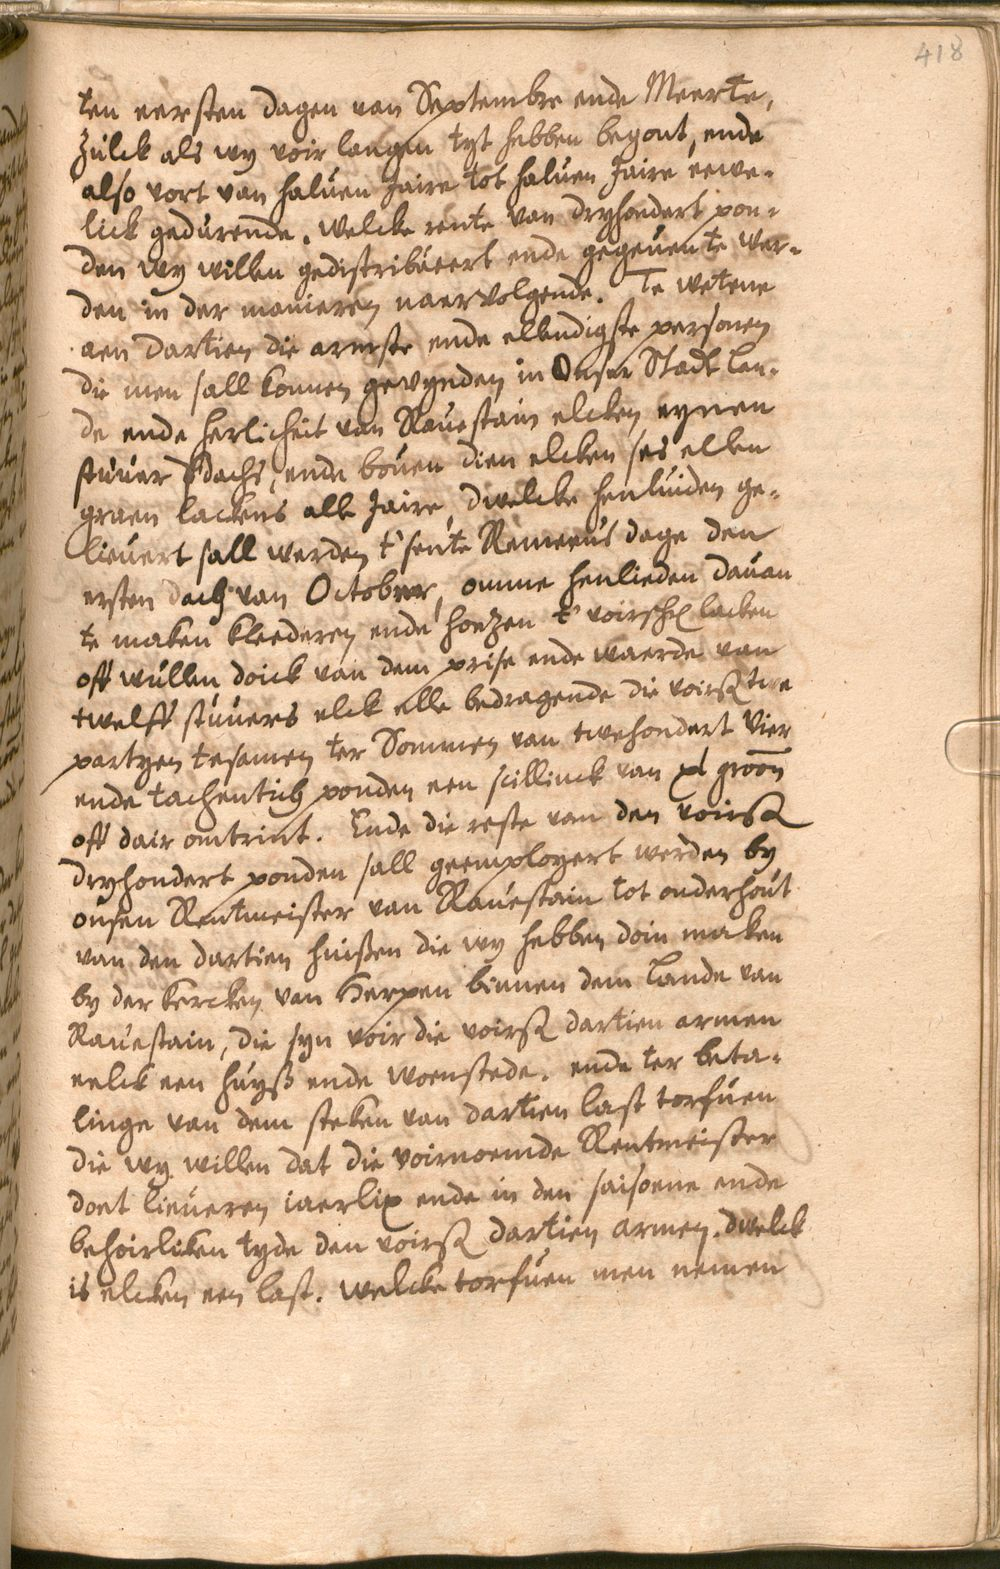 418
ten eersten dagen van Septembre ende Meerte,
Zulck als wy voir langen tyt hebben begont, ende
also vort van haluen Jaire tot haluen Jaire eewe-
lick gedurende. Welcke rente van dryhondert pon-
den wy willen gedistribueert ende gegeuen te wer-
den in der manieren naervolgende. Te wetene
aen dartien die armste ende ellendigste personen
die men sall konnen gevynden in Onser Stadt Lan-
de ende herlicheit van Rauestain elcken eynen
stuuer sdachs, ende bouen dien elcken ses ellen
graen lackens alle Jaire, dwelcke henluiden ge-
lieuert sall werden t'sente Remeeus dage den
ersten dach van October, omme henlieden dauan
te maken kleederen ende hoezen t' voirsch lacken
off wullen doick van dem prise ende waerde van
twelff stuuers elck elle bedragende die voirß twe
partyen tesamen ter Sommen van twehondert vier
ende tachentich ponden een scillinck van xl groon
off dair omtrint. Ende die reste van den voirß
dryhondert ponden sall geemployert werden by
onsen Rentmeister van Rauestain tot onderhout
van den dartien huißen die wy hebben doin maken
by der kercken van Herpen binnen dem Lande van
Rauestain, die syn voir die voirß dartien armen
eelck een huyß ende woenstede. ende ter beta-
linge van dem steken van dartien last torfuen
die wy willen dat die voirnoemde Rentmeister
doet lieueren iaerlix ende in den saisoene ende
behoirliken tyde den voirß dartien armen. dwelck
is elcken een last. welcke torfuen men nemen